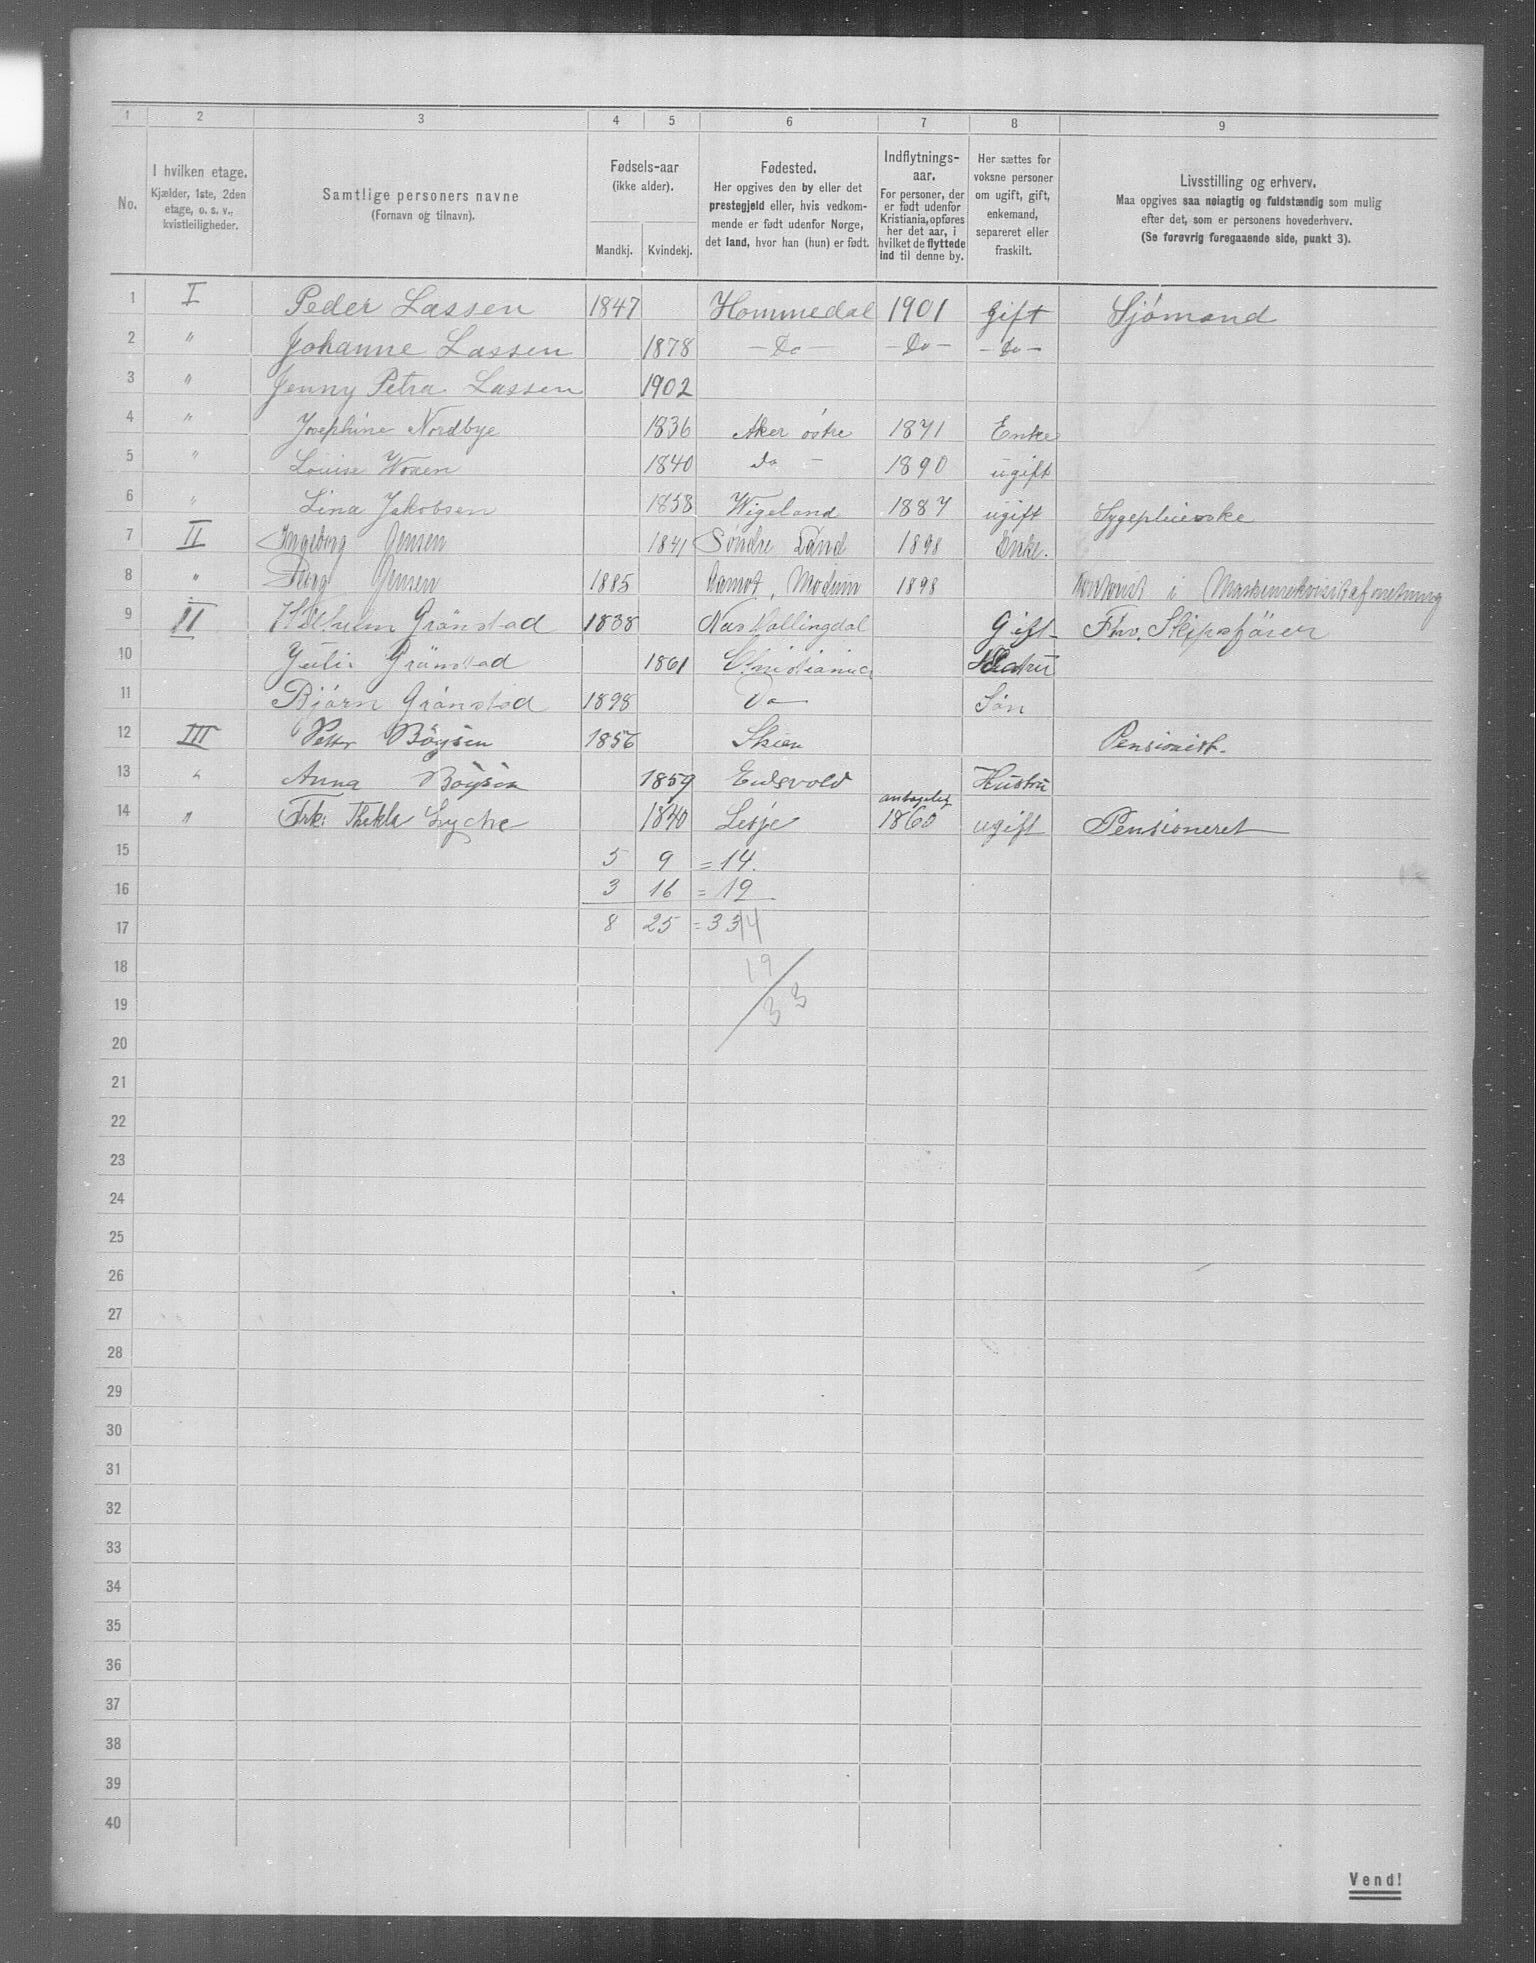 1 2 3 4 5 6 7 8 9
No.
I hvilken etage.
Kjælder, 1ste, 2den
etage, o. s. v.,
kvistleiligheder.
Samtlige personers navne
(Fornavn og tilnavn).
Fødsels-aar
(ikke alder).
Mandkj. Kvindekj.
Fødested.
Her opgives den by eller det
prestegjeld eller, hvis vedkom-
mende er født udenfor Norge,
det land, hvor han (hun) er født.
Indflytnings-
aar.
For personer, der
er født udenfor
Kristiania, opføres
her det aar, i
hvilket de flyttede
ind til denne by.
Her sættes for
voksne personer
om ugift, gift,
enkemand,
separeret eller
fraskilt.
Livsstilling og erhverv.
Maa opgives saa nøiagtig og fuldstændig som mulig
efter det, som er personens hovederhverv.
(Se forøvrig foregaaende side, punkt 3).
1 I Peder Lassen 1847 Hommedal 1901 gift Sjömand
2 " Johanne Lassen 1878 - Do - - Do - - Do -
3 " Jenny Petra Lassen 1902
4 " Josephine Nordbye 1836 Aker östre 1871 Enke
5 " Louise 1840 do - 1890 ugift
6 " Lina Jakobsen 1858 Wigeland 1887 ugift Sygepleierske
7 II Ingeborg Jensen 1841 Søndre Land 1898 Enke.
8 " Jensen 1885 Aamot, Modum 1898 Kontorist i
9 II Wilhelm Grönstad 1838 Nas Hallingdal Gift Fhv. Skipsförer
10 Grönstad 1861 Christiania Hustru
11 Bjørn Grönstad 1898 Do Sön
12 III Petter Böysen 1856 Skien Pensionist.
13 " Anna Böysen 1859 Eidsvold Hustru
14 " Frk. Thekla Lyche 1840 Lesje antagelig 1860 ugift Pensioneret
15 5 9 = 14.
16 3 16 = 19
17 8 25 = 33 14
18 19
19 33
20
21
22
23
24
25
26
27
28
29
30
31
32
33
34
35
36
37
38
39
40
Vend!